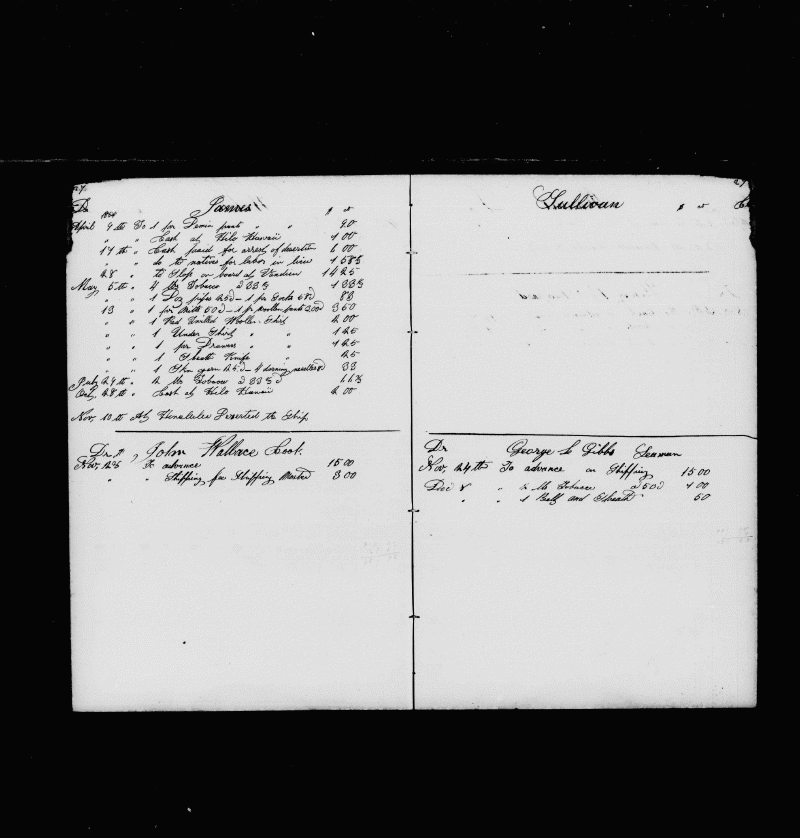 27.
Dr 1864 James $ ct
April 9th To 1 pr Denim pants " " 90
" " Cash at Hilo Hawaii 1 00
17th " Cash paid for arrest of desertion 6 00
" " do to natives for labor in lieu 1 58⅓
28 " to Slops on board at
May 5th " 4 lbs Tobacco @ 33⅓ 1 33⅓
" " 1 Doz pipes 25c 1 pr Socks 58c 83
13 " 1 50c 1 pr woollen pants 300c 3 50
" " 1 Red Twilled Woollen Shirt 2 00
" " 1 Under Shirt " " 1 25
" " 1 pr Drawers " " 1 25
" " 1 Sheath Knife " 25
" " 1 Skn yarn 25c 4 darning needles 8c 33
July 29th " 2 lbs Tobacco @ 33⅓c 66⅔
Oct, 28th " Cash at Hilo Hawaii 2 00
Nov, 10th At Honolulu Deserted the Ship
Dr, John Wallace Cook.
Nov, 25 To advance 15 00
" " Shipping fee Shipping Master 3 00
27
Sullivan $ ct
Dr George Gibbs Seaman
Nov, 24th To advance on Shipping 15 00
Dec 8 " 2 lbs Tobacco @ 50c 1 00
" " 1 Belt and Sheath 50